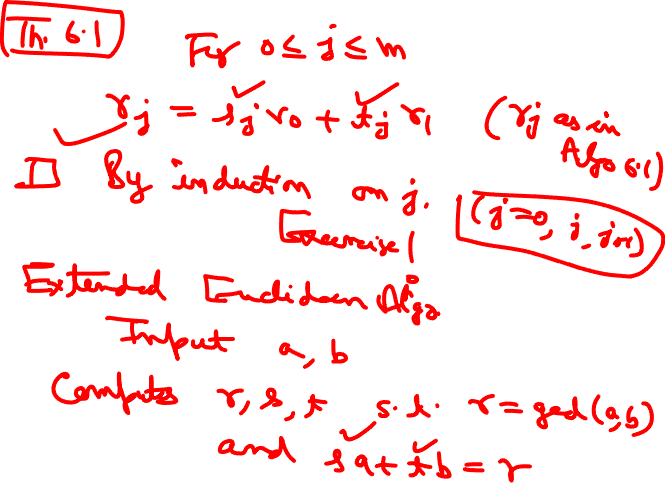 Th. 6.1
For 0 ≤ j ≤ m
r_j = s_j r_0 + t_j r_1 (r_j as in Algo 6.1)
By induction on j. (j=0, j, j+1)
Exercise!
Extended Euclidean Algo.
Input a, b
Computes r, s, t s.t. r = gcd(a,b)
and sa + tb = r